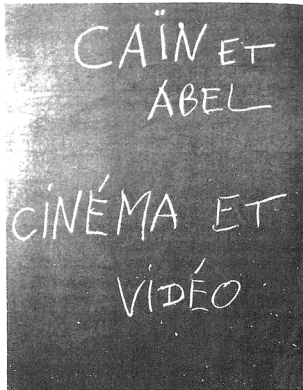 CAÏN ET
ABEL
CINÉMA ET
VIDÉO